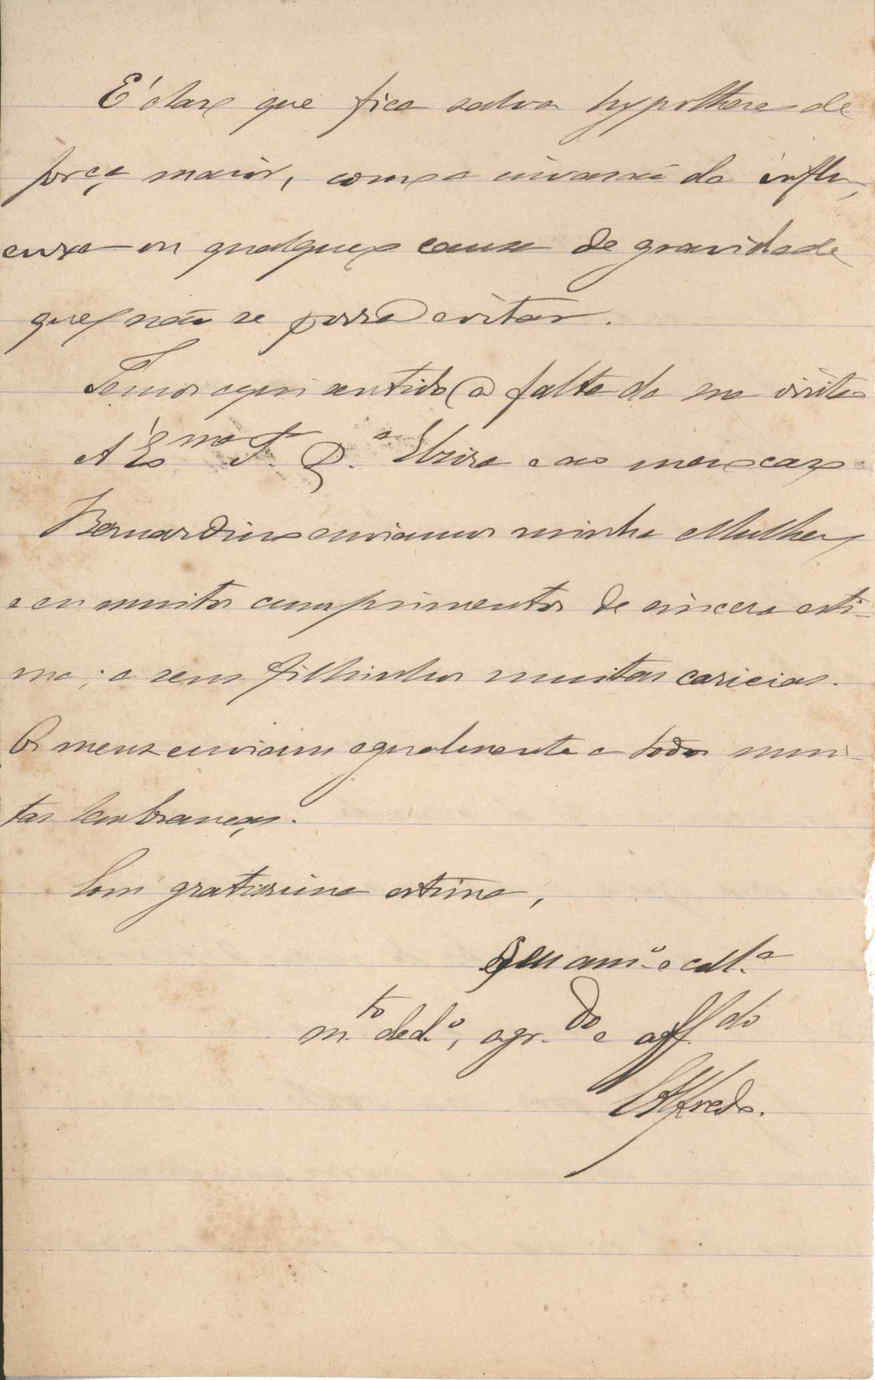 É claro que fica salva hypothese de
força maior, como a invasão da influ-
enza ou qualquer causa de gravidade
que não se possa evitar.
Temos aqui sentido a falta da sua visita
Á Exma Sr. D.ª Elvira e ao meu caro
Bernardino enviamos minha Mulher
e eu muitos cumprimentos de sincera esti-
ma; a seus filhinhos muitas caricias.
Os meus enviam egualmente a todos mui-
tas lembranças.
Com gratissima estima,
Seu am.º e coll.ª
m.to ded.º, agr.do e aff.do
Alfredo.